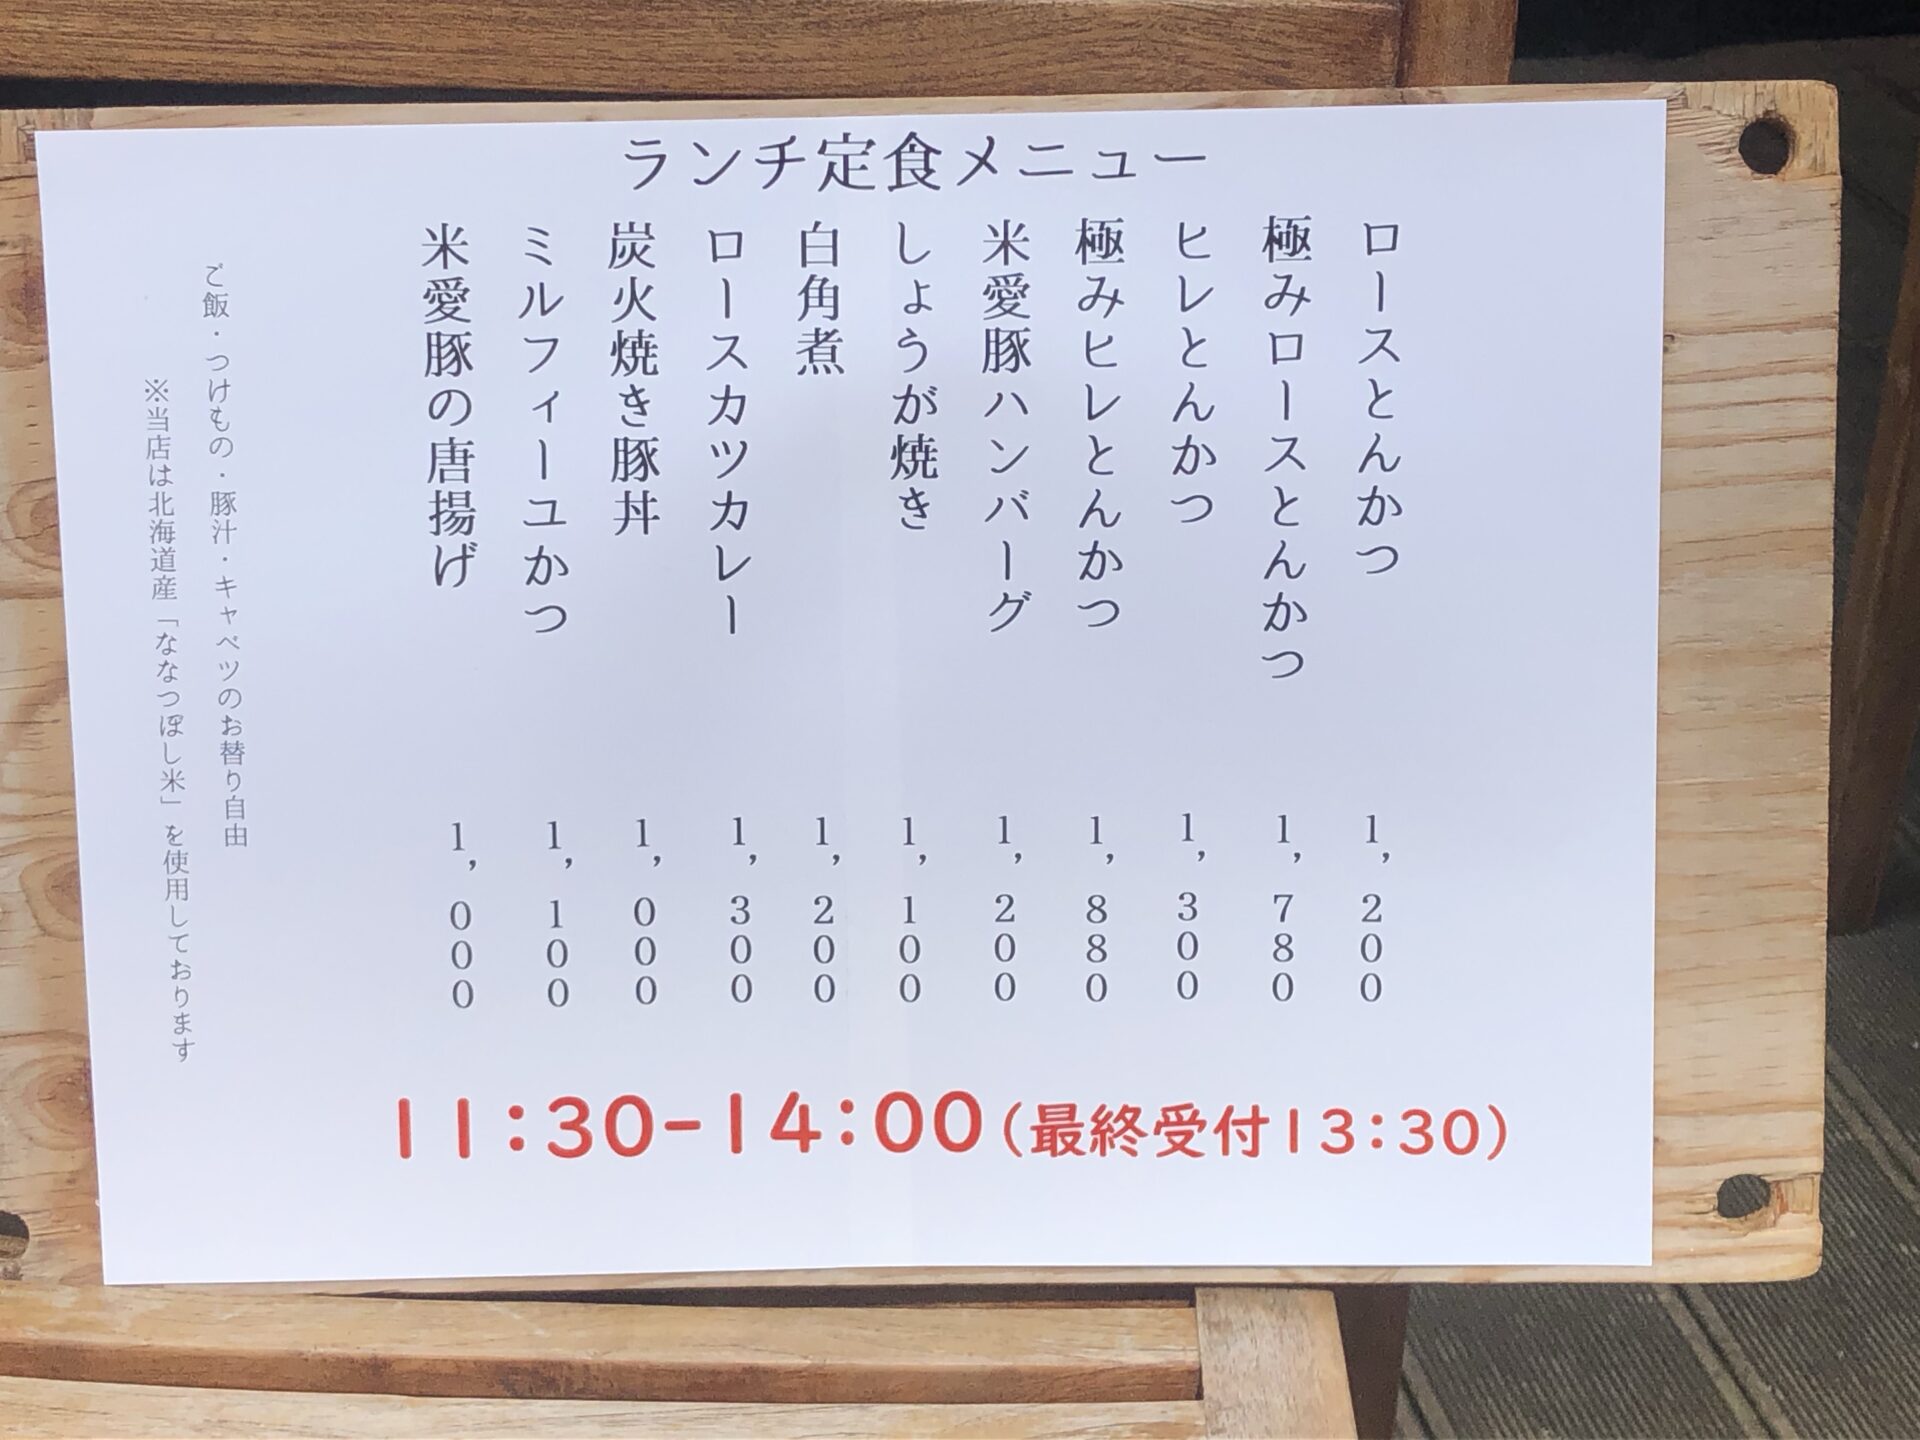 ランチ定食メニュー
ロースとんかつ 1,200
極みロースとんかつ 1,780
ヒレとんかつ 1,300
極みヒレとんかつ 1,880
米愛豚ハンバーグ 1,200
しょうが焼き 1,100
白角煮 1,200
ロースカツカレー 1,300
炭火焼き豚丼 1,000
ミルフィーユかつ 1,100
米愛豚の唐揚げ 1,000
ご飯・つけもの・豚汁・キャベツのお替り自由
※当店は北海道産「ななつぼし米」を使用しております
11:30-14:00(最終受付13:30)